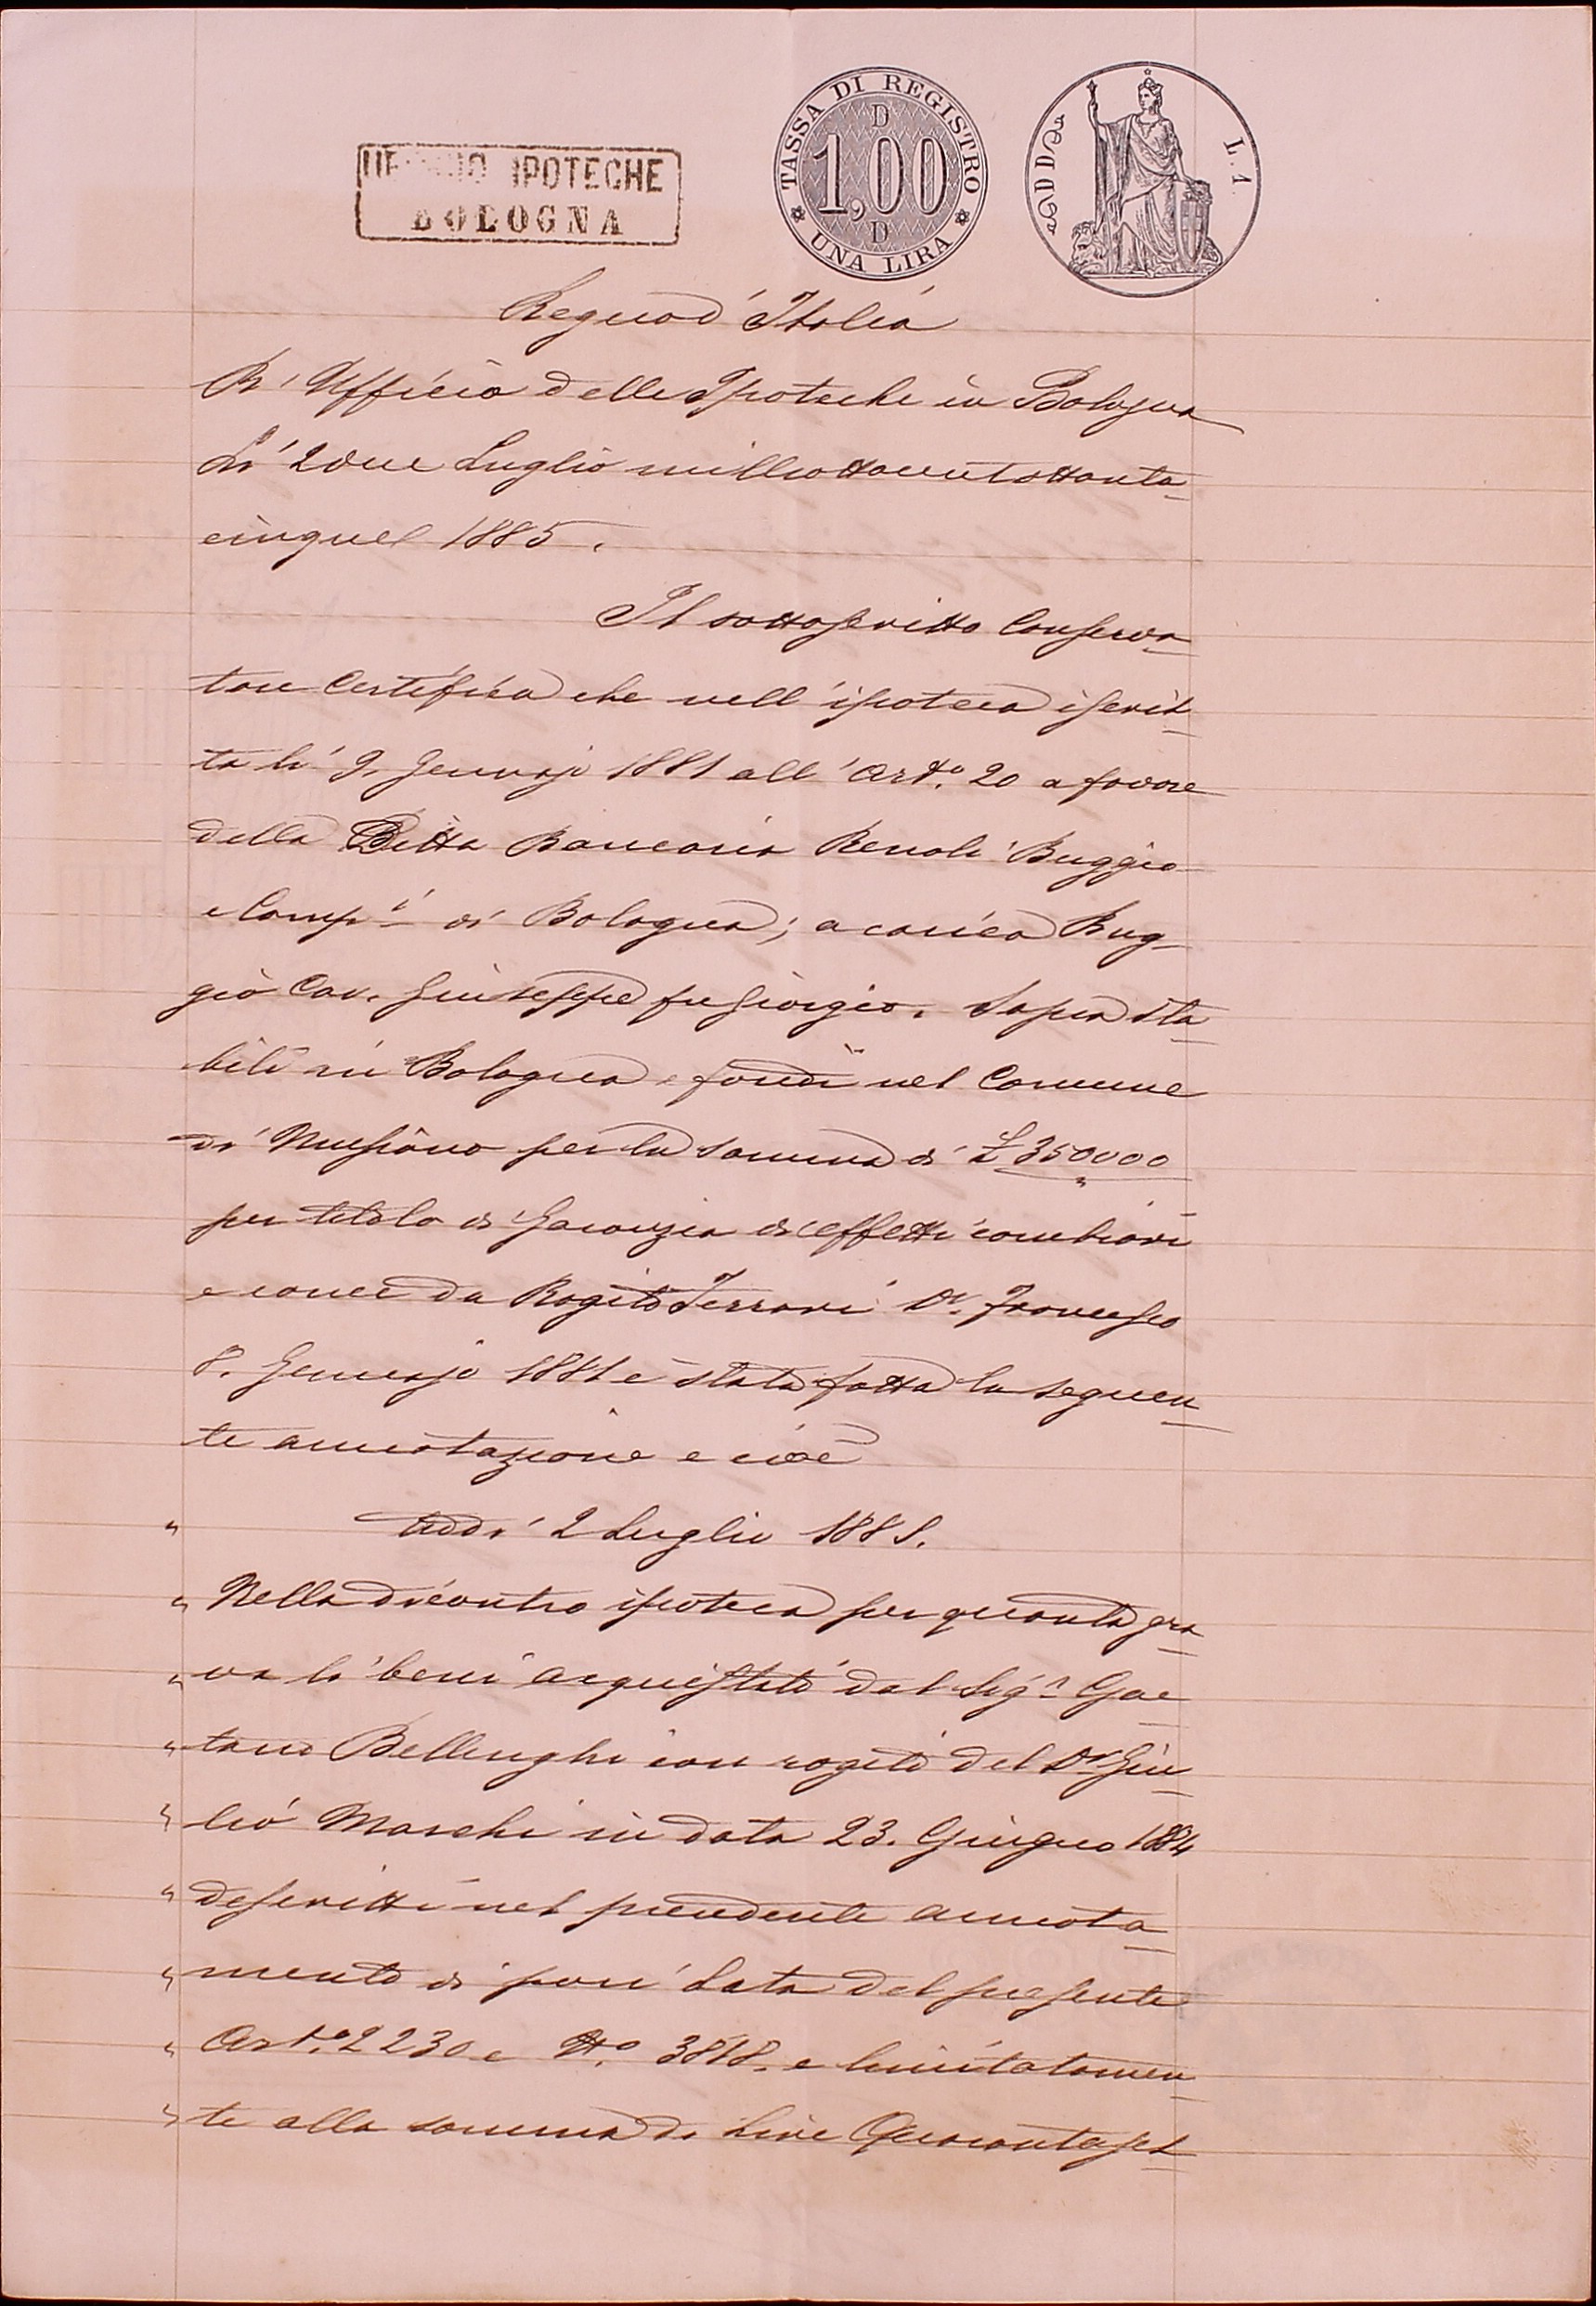 TASSA DI REGISTRO
D
1,00
D
UNA LIRA
L. 1.
IPOTECHE
BOLOGNA
Regno d'Italia
R. Ufficio delle Ipoteche in Bologna
Li 2 due Luglio milleottocentottanta-
cinque 1885.
Il sottoscritto Conserva-
tore Certifica che nell'ipoteca iscrit-
ta li 9. Gennajo 1881 all'Art.o 20 a favore
della Ditta Bancaria Renoli Buggio
e Comp.i di Bologna; a carico Bug-
gio Cav. Giuseppe fu Giorgio. Sopra sta-
bili in Bologna e fondi nel Comune
di per la somma di £ 350000
per titolo di Garanzia di effetti cambiari
e come da Rogito Ferrari Dr. Francesco
8. Gennajo 1881 è stata fatta la seguen-
te annotazione e cioè
" Addì 2 Luglio 1885.
" Nella dicontro ipoteca per quanto gra-
" va li beni acquistati dal Sig.r Gae-
" tano Bellenghi con rogito del Dr. Giu-
" lio Marchi in data 23. Giugno 1884
" descritti nel precedente annota-
" mento di pari data del presente
" Art.o 2230 e N.o 3818. e limitatamen-
" te alla somma di Lire Quarantaset-